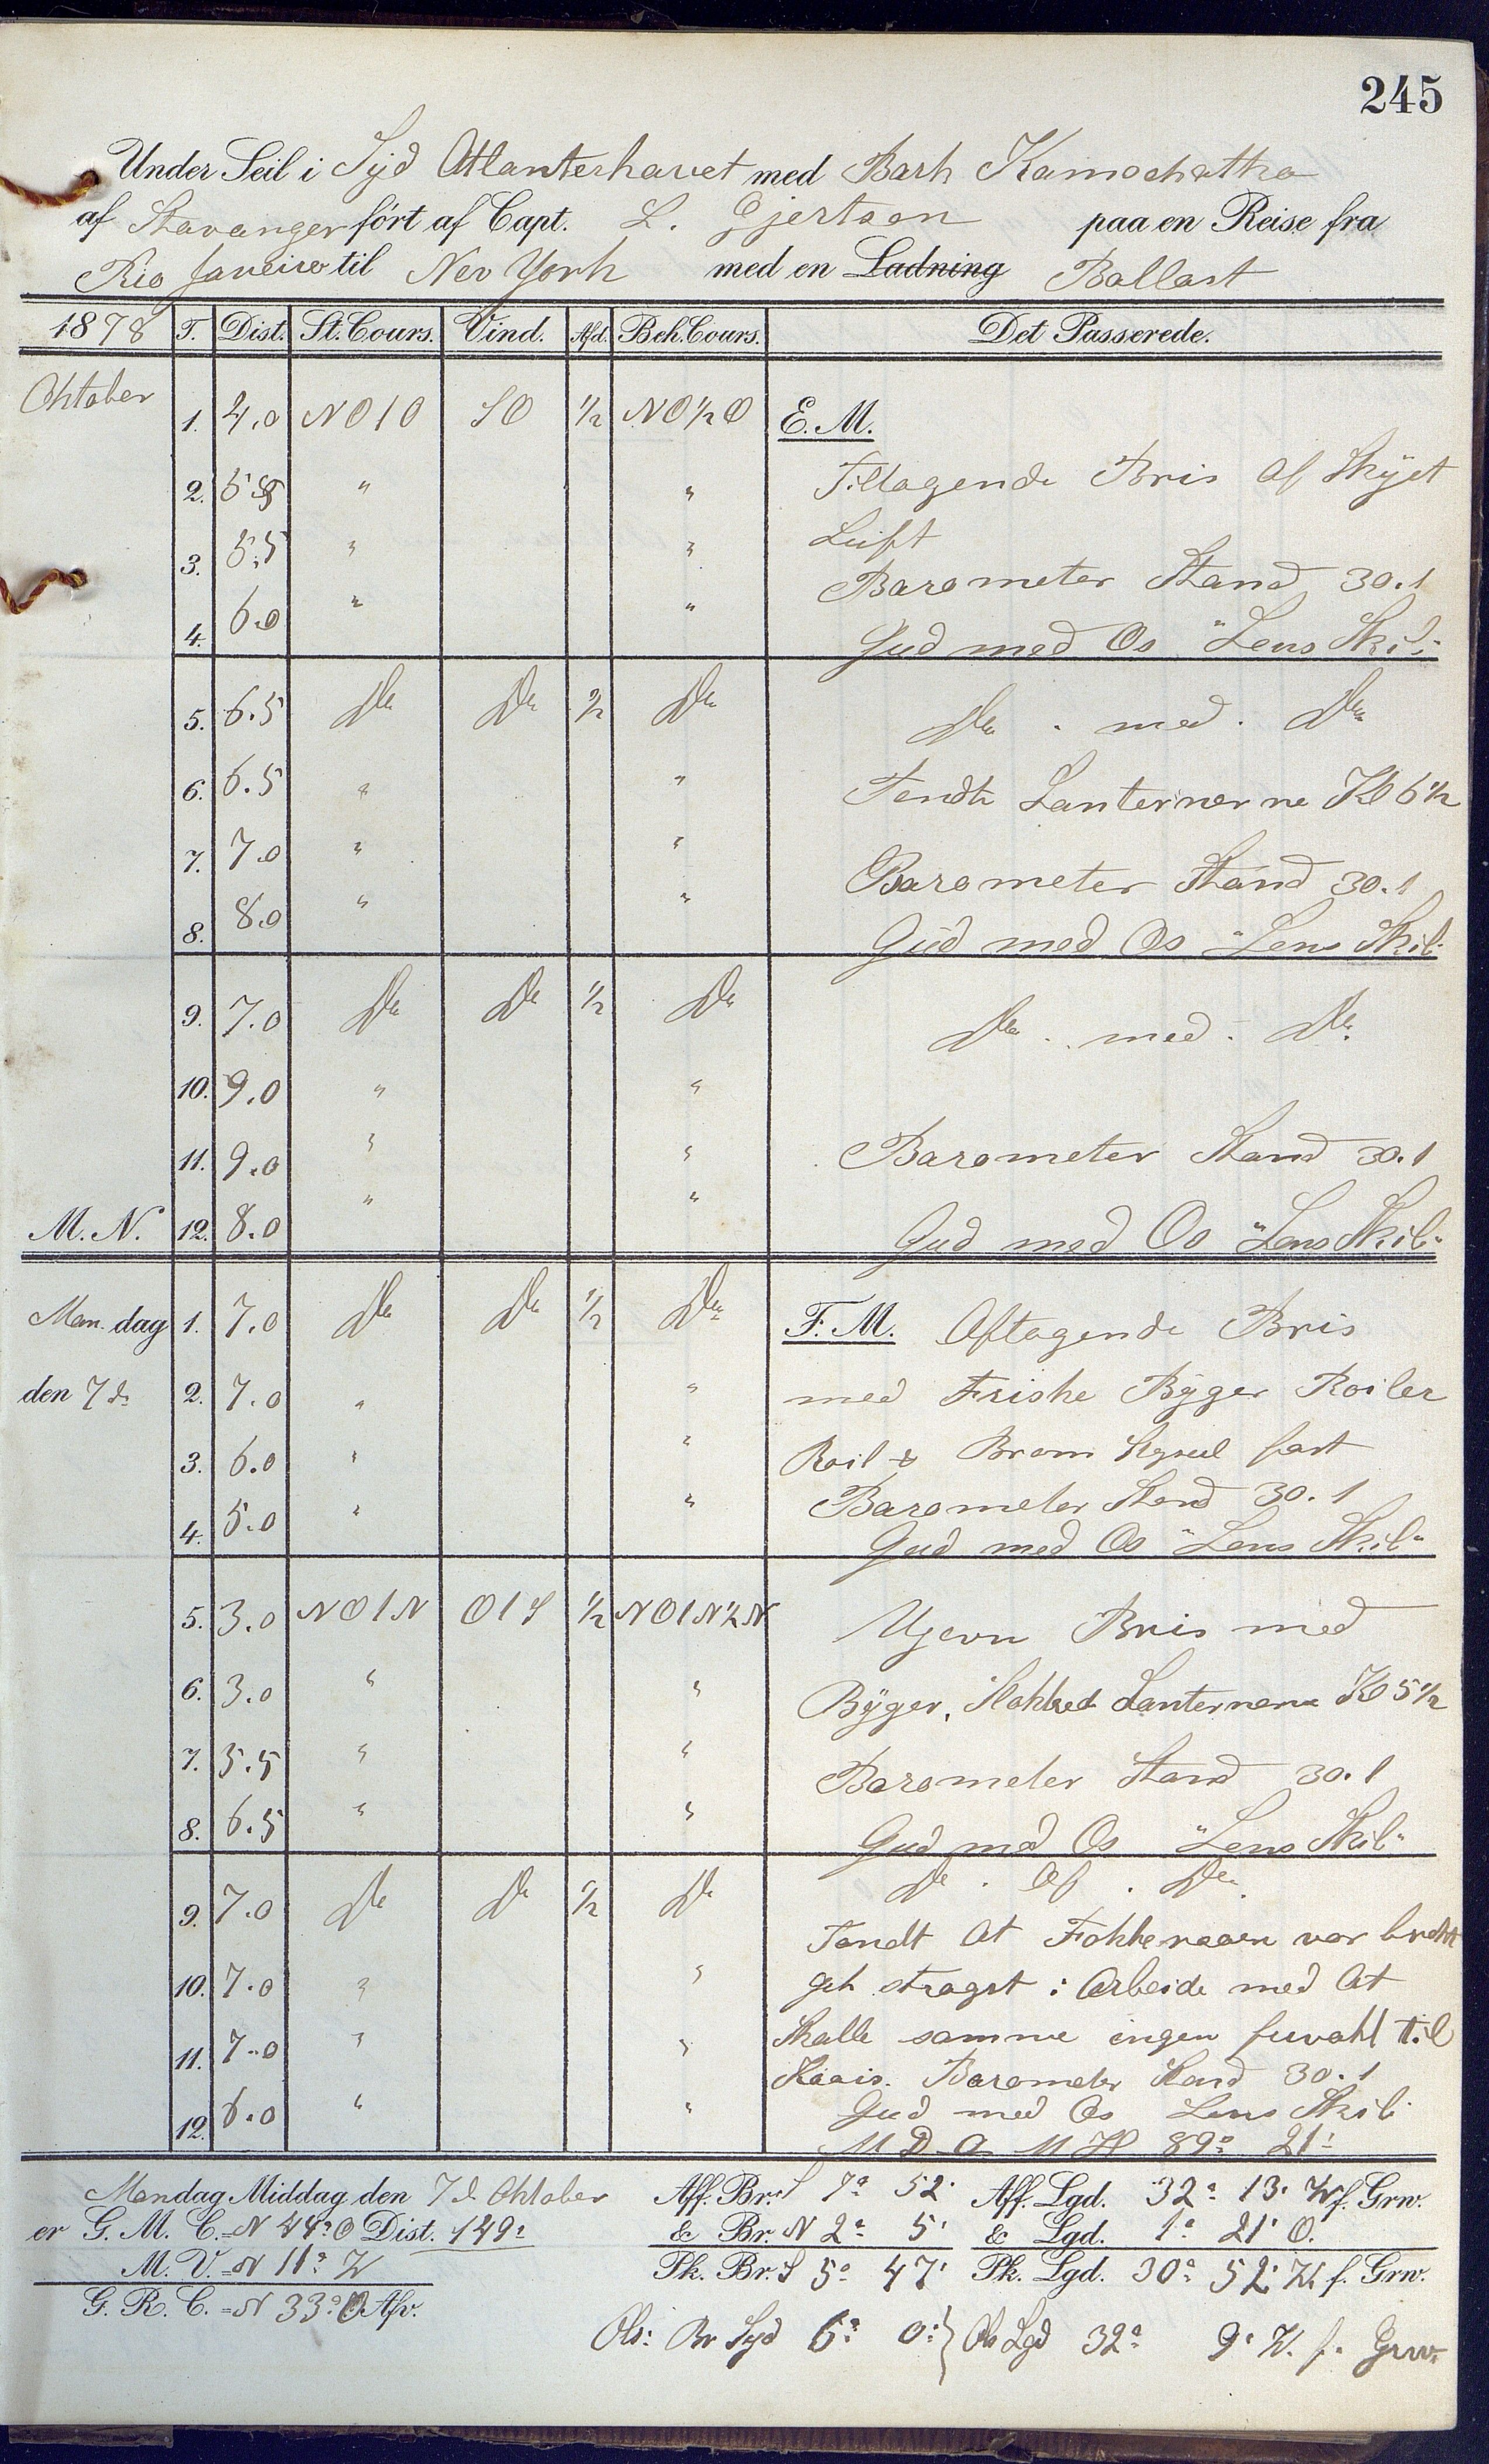 245
Under Seil i Syd Atlanterhavet med Bark Kamschatka
af Stavanger fört af Capt. L. Gjertsen paa en Reise fra
Rio Janeiro til New York med en Ladning Ballast
1878 T. Dist. St. Cours. Vind. Afd. Beh. Cours. Det Passerede.
Oktober 1. 4.0 NO1O SO 1/2 NO 1/2 O E. M.
2. " " Tiltagende Bris af Skyet
3. 5.5 " " Luft
Barometer Stand 30.1
4. 6.0 " " Gud med Os "Lens Skib"
5. 6.5 Do Do 1/2 Do Do . med . Do
6. 6.5 " " Tendte Lanternerne Kl 6 1/2
7. 7.0 " " Barometer Stand 30.1
8. 8.0 " " Gud med Os "Lens Skib"
9. 7.0 Do Do 1/2 Do Do . med . Do
10. 9.0 " "
11. 9.0 " " Barometer Stand 30.1
M. N. 12. 8.0 " " Gud med Os "Lens Skib"
Man dag 1. 7.0 Do Do 1/2 Do F. M. Aftagende Bris
den 7 de 2. 7.0 " " med Friske Byger Roiler
3. 6.0 " " Roil & Bram Stgseil fast
Barometer Stand 30.1
4. 5.0 " " Gud med Os "Lens Skib"
5. 3.0 NO1N O1S 1/2 NO1N 1/2 N Ujevn Bris med
6. 3.0 " " Byger, Slokked Lanternerne Kl 5 1/2
7. 5.5 " " Barometer Stand 30.1
8. 6.5 " " Gud med Os "Lens Skib"
9. 7.0 Do Do 1/2 Do Do . Af . Do
Fandt At Fokkeraaen var brekt
10. 7.0 " " gik stragst i Arbeide med At
11. 7.0 " " Skalke samme ingen til
Barometer Stand 30.1
12. 6.0 " " Gud med Os Lens Skib
M D O M H 89° 21'
Mandag Middag den 7 d Oktober Aff. Br. S 7° 52' Aff. Lgd. 32° 13' W f. Grw.
er G. M. C. = N 44° O Dist. 149' & Br. N 2° 5' & Lgd. 1° 21' O.
M. V. = N 11° W Pk. Br. S 5° 47' Pk. Lgd. 30° 52' W. f. Grw.
G. R. C. = N 33° O Afv.
Obs: Br Syd 6° 0' } Ob Lgd 32° 9' W. f. Grw.